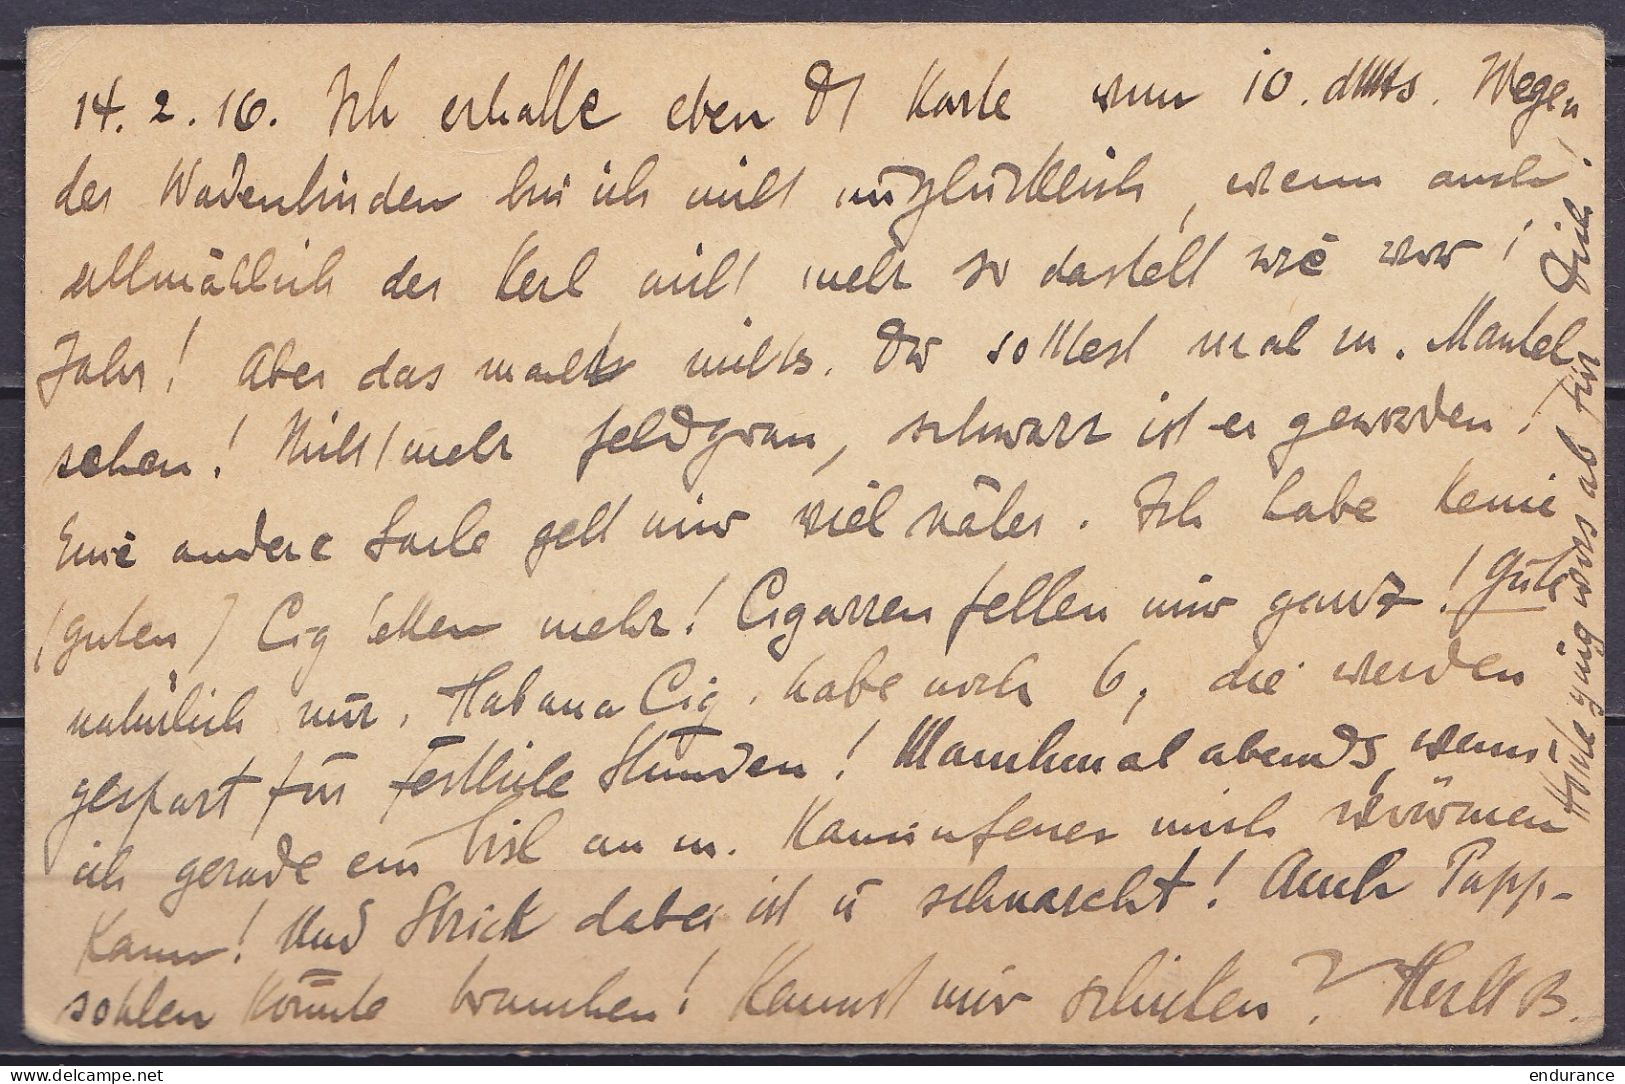 14. 2. 16. Ich erhalte eben D/ Karte vom 10. dMts. Wegen
der Wadenbinden bin ich nicht unglücklich, wenn auch
allmählich der Kerl nicht mehr so dasteht wie vor 1
Jahr! Aber das macht nichts. Du solltest mal m. Mantel
sehen! Nicht mehr feldgrau, schwarz ist er geworden!
Eine andere Sache geht mir viel näher. Ich habe keine
(guten) Cig'etten mehr! Cigarren fehlen mir ganz! Gute
natürlich nur. Habana Cig. habe noch 6, die werden
gespart für festliche Stunden! Manchmal abends, wenn
ich gerade ein bisl an m. Kaminfeuer mich wärmen
kann! Und Strick dabei ist u schnarcht! Auch Papp-
sohlen könnte brauchen! Kannst mir schicken? Herzl B.
Heute ging was ab für Dich!
endurance
delcampe.net